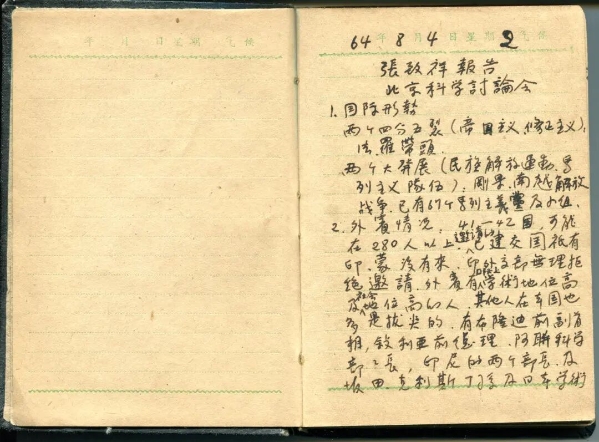 年 月 日星期 气候
64年8月4日星期2气候
張致祥報告
北京科学討論会
1. 国际形势
两个四分五裂(帝国主义,修正主义),
法、羅帶頭.
两个大發展(民族解放運動,馬
列主义隊伍);剛果、南越解放
战争.已有67个馬列主義黨及小组.
2. 外賓情况:41—42国,可能
在280人以上.邀请的已建交国祗有
印、蒙没有來,印外交部無理拒
绝邀請.外賓有学術地位高
及社会地位高的人.其他人在本国也
多是拔尖的.有布隆迪前副首
相,敘利亚前总理.阿联科学
部部長,印尼的两个部長.及
坂田.克利斯 及日本学術